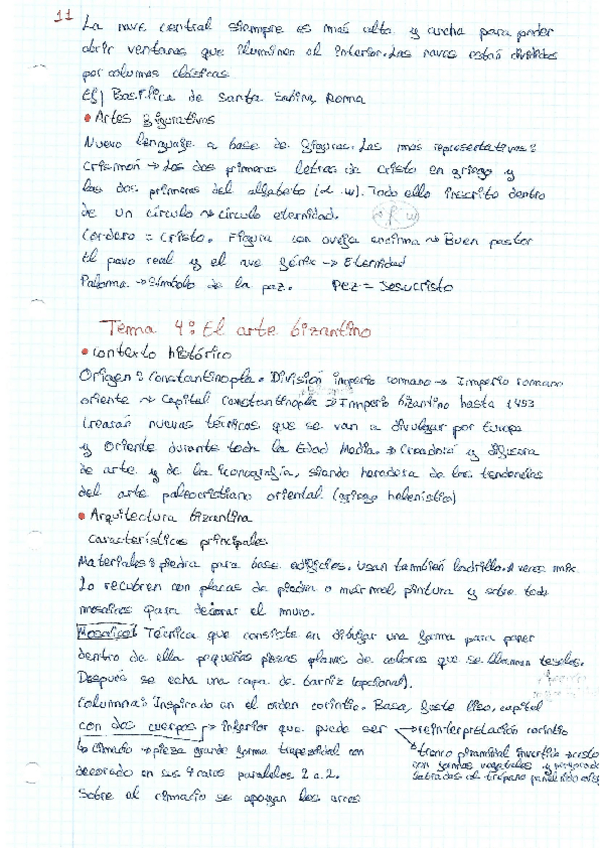 11
La nave central siempre es más alta y ancha para poder
abrir ventanas que iluminen al interior. Las naves están divididas
por columnas clásicas
Ej) Basílica de Santa Sabina, Roma
• Artes figurativas
Nuevo lenguaje a base de figuras. Las más representativas:
Crismón → Las dos primeras letras de Cristo en griego y
las dos primeras del alfabeto (α w). Todo ello inscrito dentro
de un círculo → círculo eternidad.
Cordero = Cristo. Figura con oveja encima → Buen pastor
El pavo real y el ave fénix → Eternidad
Paloma → Símbolo de la paz. Pez = Jesucristo
Tema 4: El arte bizantino
• Contexto histórico
Origen: Constantinopla. División imperio romano → Imperio romano
oriente → Capital Constantinopla → Imperio bizantino hasta 1453
Crearán nuevas técnicas que se van a divulgar por Europa
y Oriente durante toda la Edad Media. → Creadora y difusora
de arte y de la iconografía, siendo heredera de las tendencias
del arte paleocristiano oriental (griego helenístico)
• Arquitectura bizantina
Características principales
Materiales: piedra para base edificios. Usan también ladrillo. A veces mix.
Lo recubren con placas de piedra o mármol, pintura y sobre todo
mosaicos para decorar el muro.
Mosaico: Técnica que consiste en dibujar una forma para poner
dentro de ella pequeñas piezas planas de colores que se llaman teselas.
Después se echa una capa de barniz (opcional).
Columna: Inspirado en el orden corintio. Basa, fuste liso, capitel
con dos cuerpos → inferior que puede ser → reinterpretación corintio
↳ Cimacio → pieza grande forma trapezoidal con → tronco piramidal invertido → cesto
decorado en sus 4 caras paralelas 2 a 2. con formas vegetales y
labradas al trépano
Sobre el cimacio se apoyan los arcos